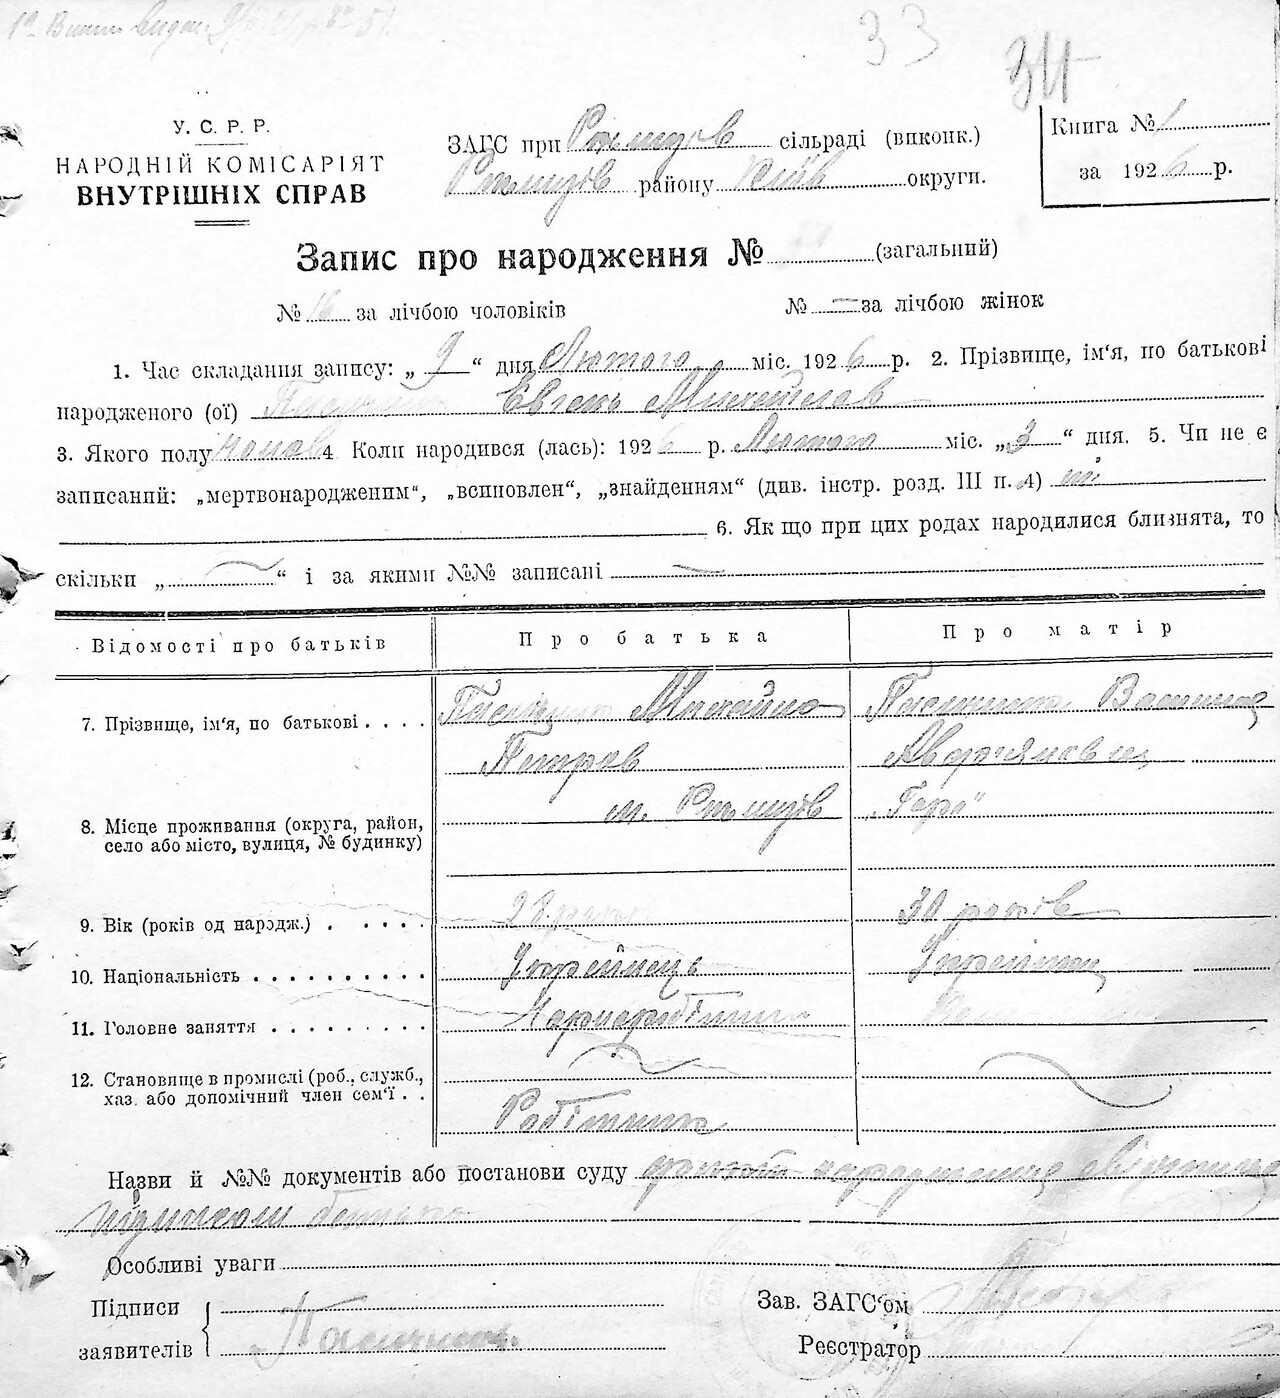 33
34
У. С. Р. Р.
НАРОДНІЙ КОМІСАРІЯТ
ВНУТРІШНІХ СПРАВ
ЗАГС при Ржищів сільраді (виконк.)
Ржищів району Київ округи.
Книга № 1
за 1926 р.
Запис про народження № (загальний)
№ 16 за лічбою чоловіків № — за лічбою жінок
1. Час складання запису: „ 9 “ дня Лютого міс. 1926 р. 2. Прізвище, ім‘я, по батькові
народженого (ої) Пасічник Євгень Михайлов
3. Якого полу чолов 4 Коли народився (лась): 1926 р. Лютого міс. „ 3 “ дня. 5. Чи не є
записаний: „мертвонародженим“, „всиновлен“, „знайденням“ (див. інстр. розд. III п. 4) ні
6. Як що при цих родах народилися близнята, то
скільки „ — “ і за якими №№ записані —
Відомості про батьків Про батька Про матір
7. Прізвище, ім‘я, по батькові . . . . Пасічник Михайло Пасічник Василина
Петров
8. Місце проживання (округа, район, м. Ржищів
село або місто, вулиця, № будинку)
9. Вік (років од народж.) . . . . . 28 років 30 років
10. Національність . . . . . . . . . . Украйнець Украйнка
11. Головне заняття . . . . . . . . . Чорноробітник
12. Становище в промислі (роб., служб.,
хаз. або допомічний член сем‘ї . . Робітник
Назви й №№ документів або постанови суду факт народження свідчиться
підписом батька
Особливі уваги
Підписи
заявителів Пасічник
Зав. ЗАГС‘ом
Реєстратор